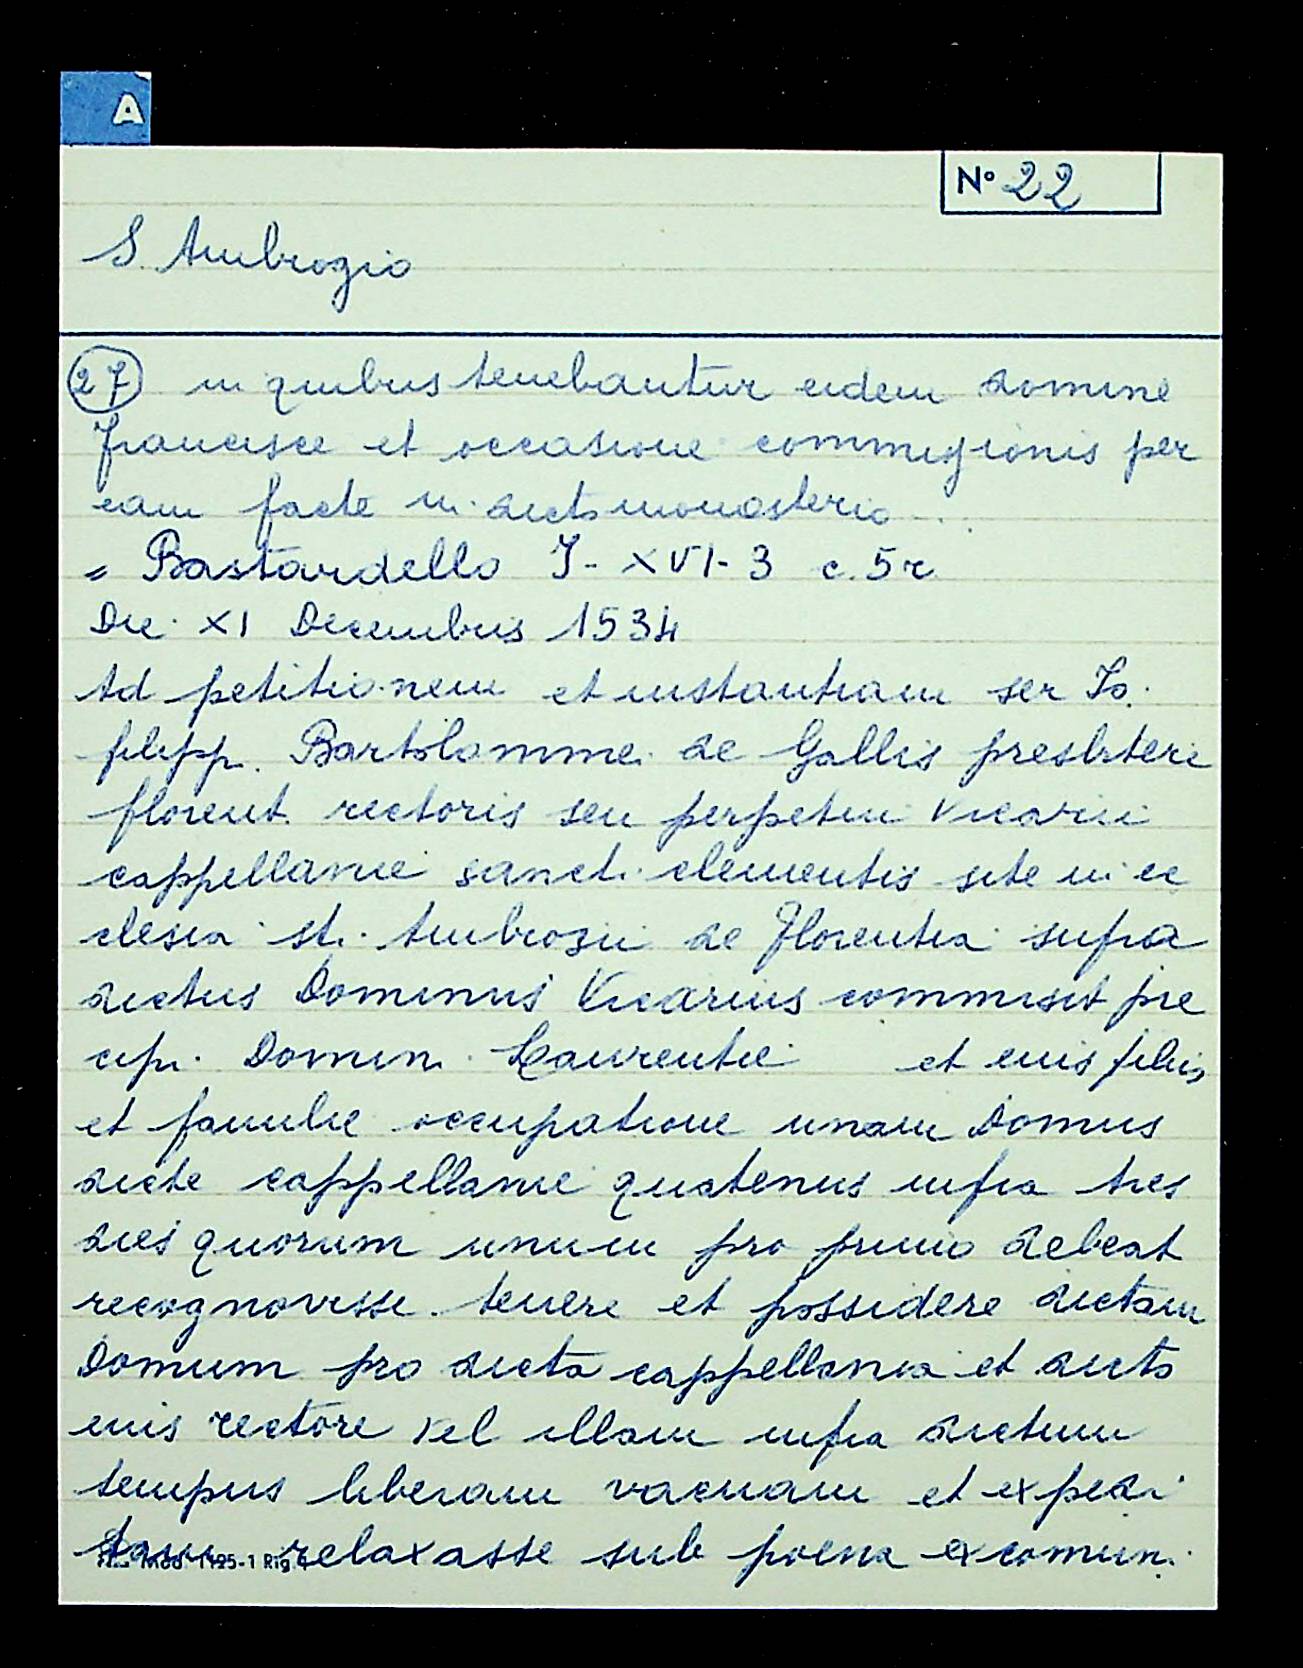 A
N° 22
S. Ambrogio
27 in quibus tenebantur eidem domine
Francisce et occasione commissionis per
eam facte in dicto monasterio...
= Bastardello J- XVI- 3 c. 5r
Die XI Decembris 1534
Ad petitionem et instantiam ser Io.
filipp. Bartolommei de Gallis presbiteri
florent. rectoris seu perpetui Vicarii
cappellanie sancti clementis site in ec
clesia sti. Ambrosii de Florentia supra
dictus Dominus Vicarius commisit pre
cipi Domin. Laurentie et eius filiis
et familie occupatione unam Domus
dicte cappellanie quatenus infra tres
dies quorum unum pro primo debeat
recognovisse tenere et possidere dictam
Domum pro dicta cappellania et dicto
eius rectore vel illam infra dictum
tempus liberam vacuam et expedi
tam relaxasse sub poena excomun.
Mod. 1125-1 Rig.